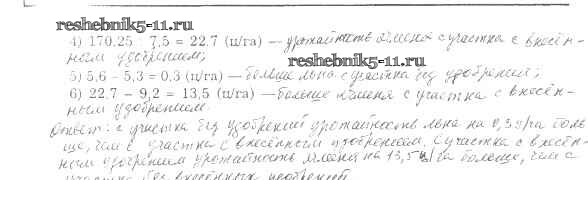 reshebnik5-11.ru
4) 170,25 : 7,5 = 22,7 (ц/га) — урожайность ячменя с участка с внесён-
ным удобрением;
reshebnik5-11.ru
5) 5,6 – 5,3 = 0,3 (ц/га) — больше льна с участка без удобрений;
6) 22,7 – 9,2 = 13,5 (ц/га) — больше ячменя с участка с внесён-
ным удобрением.
Ответ: с участка без удобрений урожайность льна на 0,3 ц/га боль-
ше, чем с участка с внесённым удобрением. С участка с внесён-
ным удобрением урожайность ячменя на 13,5 ц/га больше, чем с
участка без внесённых удобрений.